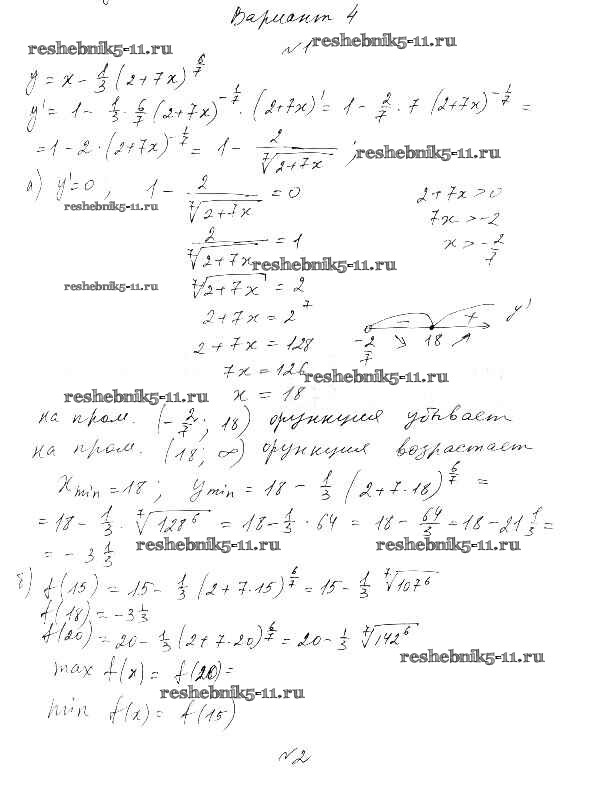 Вариант 4
reshebnik5-11.ru №1 reshebnik5-11.ru
y = x - 1/3 (2+7x)^(6/7)
y' = 1 - 1/3 · 6/7 (2+7x)^(-1/7) · (2+7x)' = 1 - 2/7 · 7 (2+7x)^(-1/7) =
= 1 - 2 · (2+7x)^(-1/7) = 1 - 2/⁷√(2+7x) ; reshebnik5-11.ru
а) y'=0, 1 - 2/⁷√(2+7x) = 0 2+7x>0
reshebnik5-11.ru 7x>-2
2/⁷√(2+7x) = 1 x>-2/7
reshebnik5-11.ru
reshebnik5-11.ru ⁷√(2+7x) = 2
2+7x = 2^7 - + y'
2+7x = 128 -2/7 ↘ 18 ↗
7x = 126 reshebnik5-11.ru
reshebnik5-11.ru x = 18
на пром. (-2/7; 18) функция убывает
на пром. (18; ∞) функция возрастает
x min = 18; y min = 18 - 1/3 (2+7·18)^(6/7) =
= 18 - 1/3 · ⁷√(128^6) = 18 - 1/3 · 64 = 18 - 64/3 = 18 - 21 1/3 =
= -3 1/3 reshebnik5-11.ru reshebnik5-11.ru
б) f(15) = 15 - 1/3 (2+7·15)^(6/7) = 15 - 1/3 ⁷√(107^6)
f(18) = -3 1/3
f(20) = 20 - 1/3 (2+7·20)^(6/7) = 20 - 1/3 ⁷√(142^6)
reshebnik5-11.ru
max f(x) = f(20) =
reshebnik5-11.ru
min f(x) = f(15)
№2